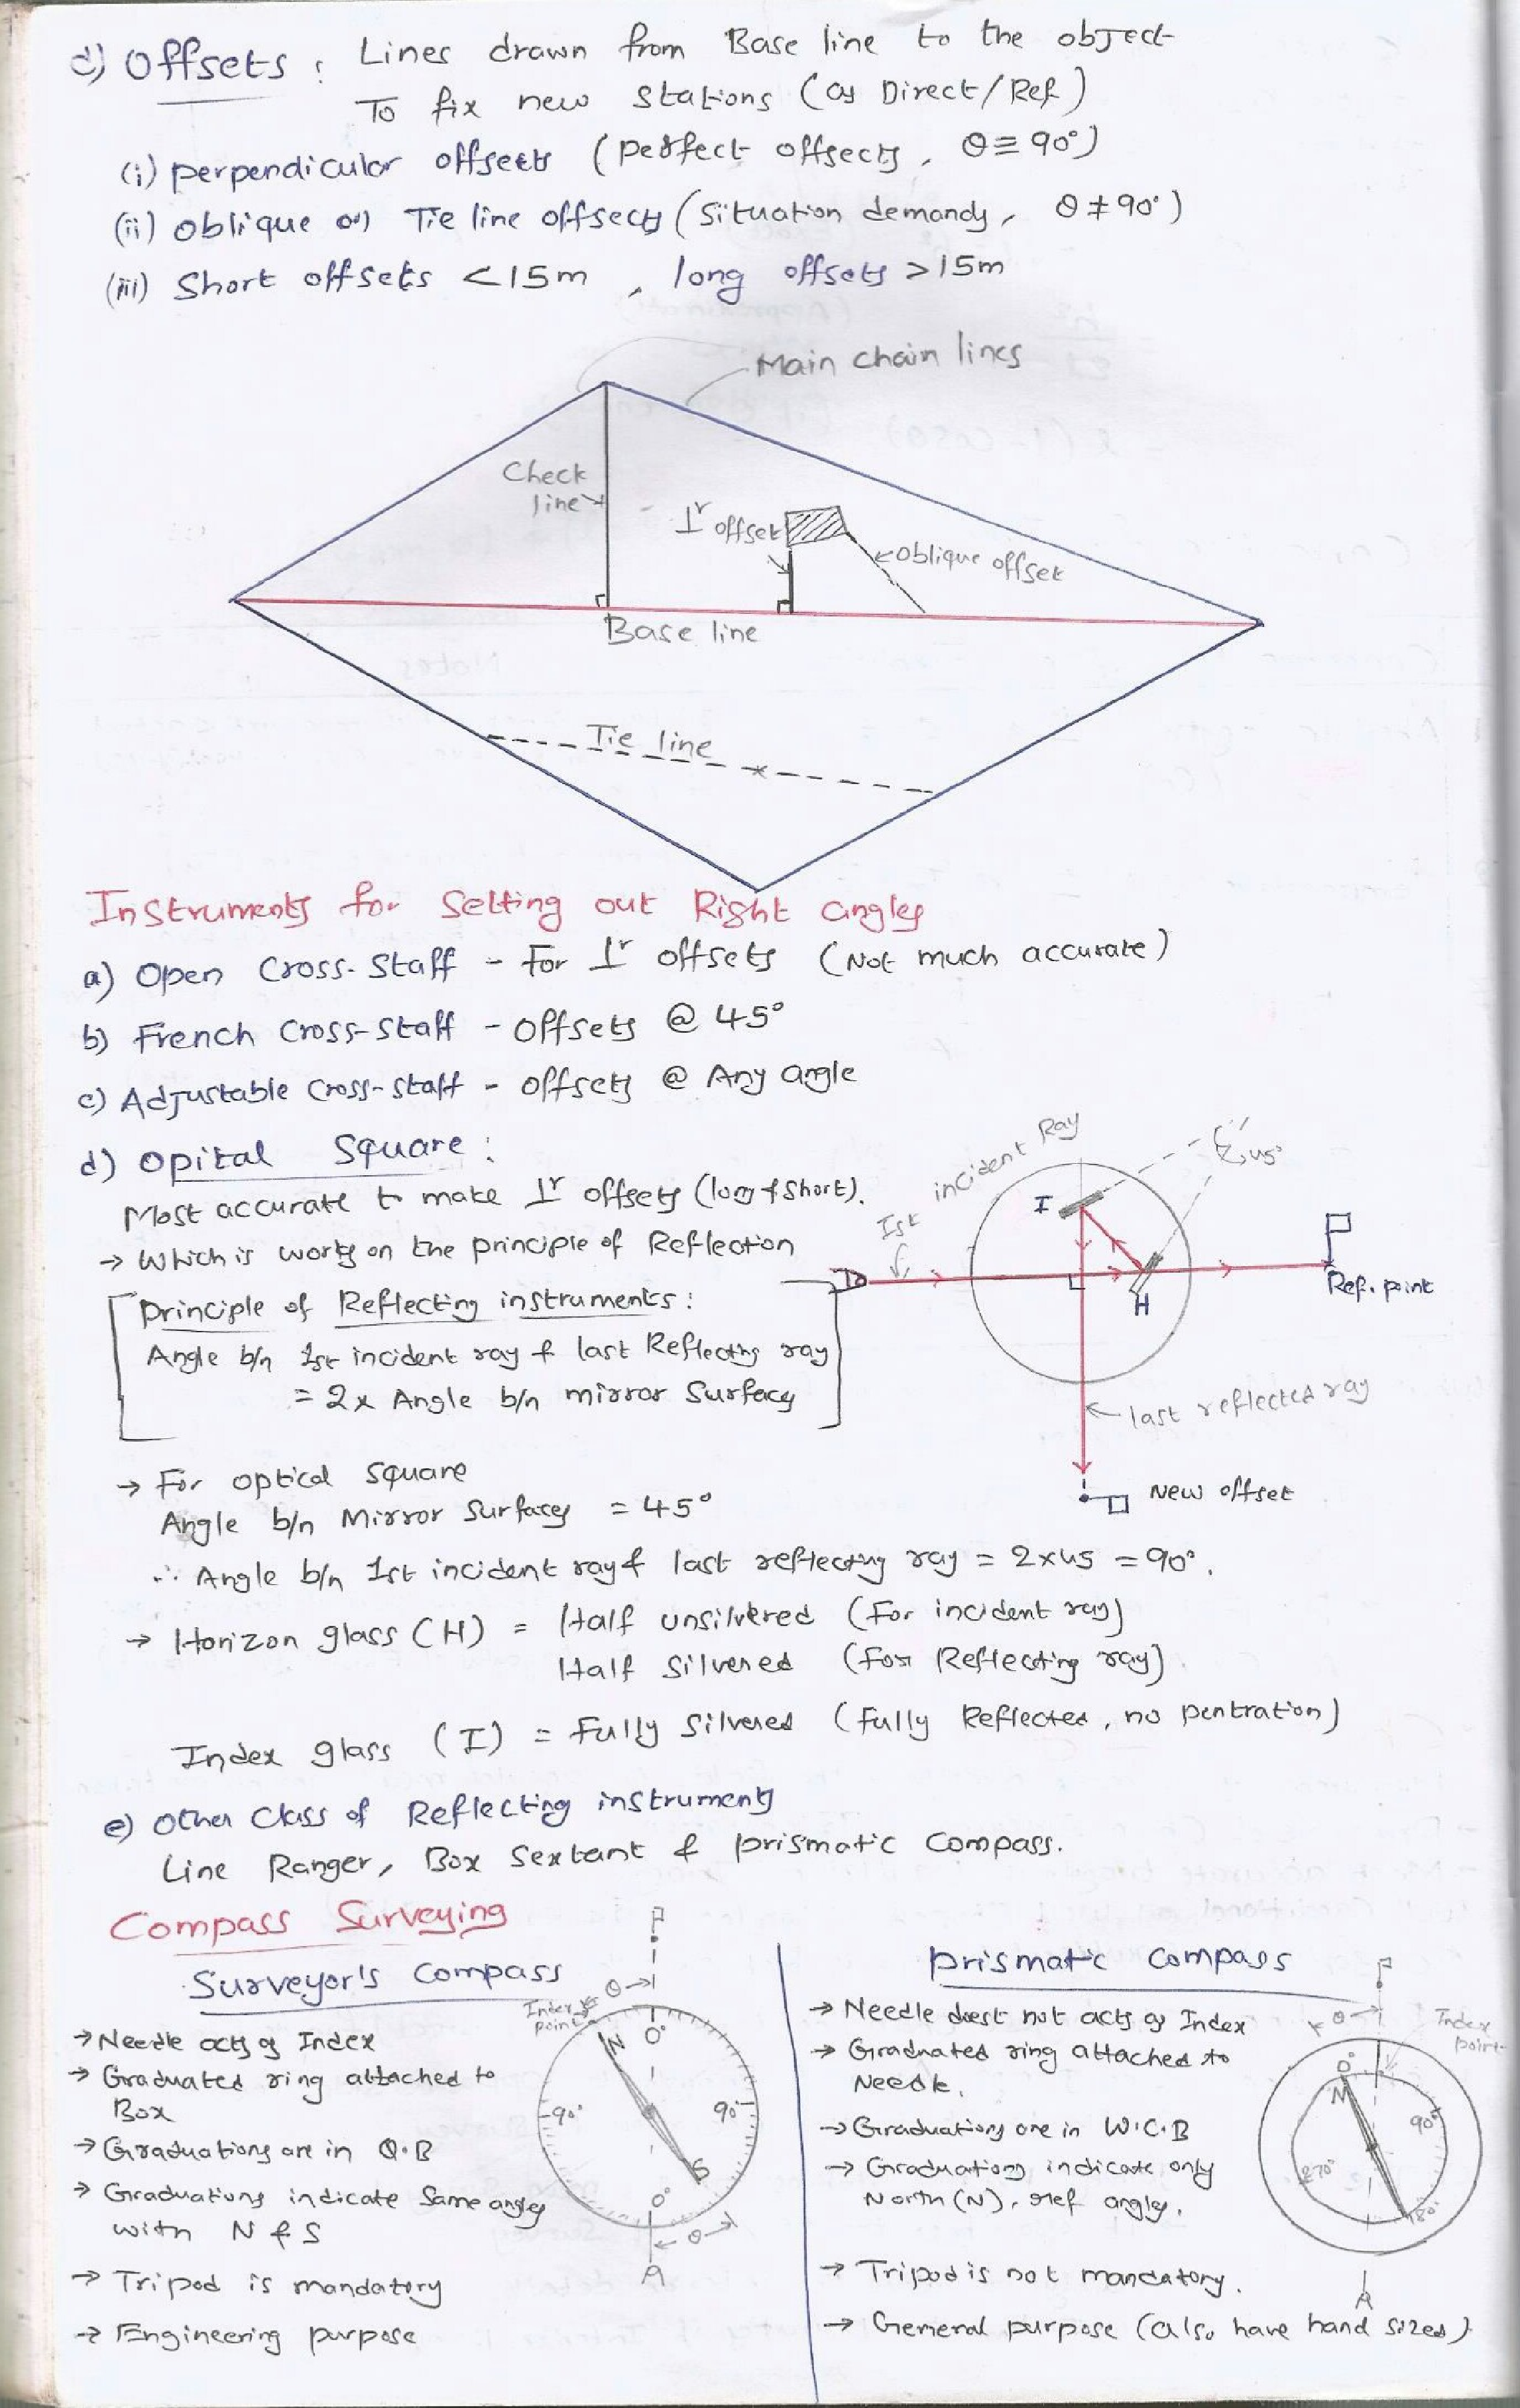 d) Offsets : Lines drawn from Base line to the object
To fix new stations (as Direct/Ref)
(i) perpendicular offsets (perfect offsects, θ ≡ 90°)
(ii) oblique or) Tie line offsects (Situation demands, θ ≠ 90°)
(iii) Short offsets < 15m , long offsets > 15m
Main chain lines
Check
line
⊥r offset
oblique offset
Base line
Tie line
Instruments for Setting out Right angles
a) Open Cross-Staff - For ⊥r offsets (Not much accurate)
b) French Cross-Staff - offsets @ 45°
c) Adjustable Cross-staff - offsets @ Any angle
d) Opital Square :
Most accurate to make ⊥r offsets (long & short).
→ Which is works on the principle of Reflection
Principle of Reflecting instruments :
Angle b/n 1st incident ray & last Reflecting ray
= 2 x Angle b/n mirror Surfaces
Ist incident Ray
I
45°
H
Ref. point
last reflected ray
New offset
→ For optical square
Angle b/n Mirror Surfaces = 45°
∴ Angle b/n 1st incident ray & last reflecting ray = 2x45 = 90°.
→ Horizon glass (H) = Half unsilvered (For incident ray)
Half Silvered (For Reflecting ray)
Index glass (I) = Fully Silvered (Fully Reflected, no pentration)
e) Other Class of Reflecting instruments
Line Ranger, Box Sextant & prismatic Compass.
Compass Surveying
Surveyor's Compass
→ Needle acts as Index
→ Graduated ring attached to
Box
→ Graduations are in Q.B
→ Graduations indicate Same angles
with N & S
→ Tripod is mandatory
→ Engineering purpose
P
θ
Index
point
N
0°
90°
90°
S
0°
θ
A
Prismatic Compass
→ Needle doest not acts as Index
→ Graduated ring attached to
Needle.
→ Graduations are in W.C.B
→ Graduations indicate only
North (N), ref angles.
→ Tripod is not mandatory.
→ General purpose (also have hand sized)
P
θ
Index
point
0°
N
90°
270°
180°
A